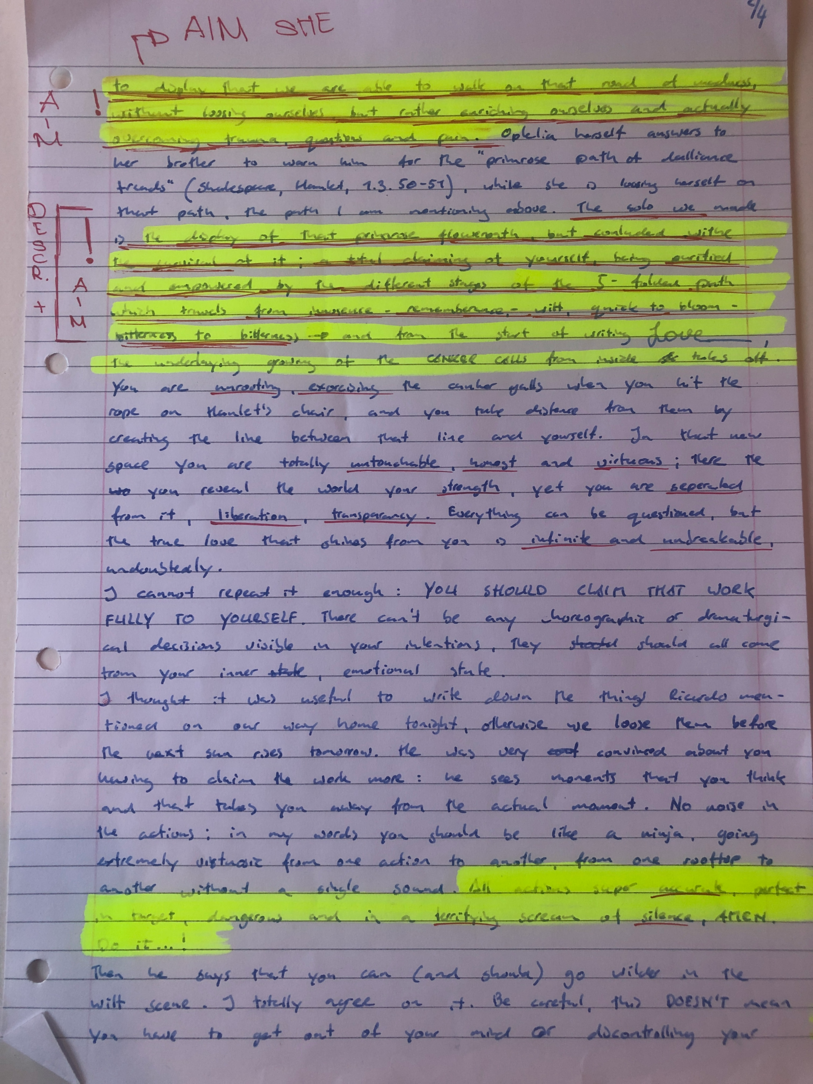 2/4
AIM SME
to display that we are able to walk on that road of madness,
without loosing ourselves but rather enriching ourselves and actually
overcoming trauma, questions and pain. Ophelia herself answers to
her brother to warn him for the "primrose path of dalliance
treads" (Shakespeare, Hamlet, 1.3. 50-51), while she is loosing herself on
that path, the path I am mentioning above. The solo we made
is the display of that primrose flowerpath, but concluded withe
the survival of it; a total claiming of yourself, being purified
and empowered by the different stages of the 5-folded path
which travels from innocence - remembrance - wilt, quick to bloom -
bitterness to bitterness → and from the start of writing Love,
the underlying growing of the CANKER CELLS from inside takes off.
You are unrooting, exorcising the canker galls when you hit the
rope on Hamlet's chair, and you take distance from them by
creating the line between that line and yourself. In that new
space you are totally untouchable, honest and virtuous; there the
wo you reveal the world your strength, yet you are seperated
from it, liberation, transparancy. Everything can be questioned, but
the true love that shines from you is infinite and unbreakable,
undoubtedly.
I cannot repeat it enough: YOU SHOULD CLAIM THAT WORK
FULLY TO YOURSELF. There can't be any choreographic or dramaturgi-
cal decisions visible in your intentions, they should should all come
from your inner state, emotional state.
I thought it was useful to write down the things Ricardo men-
tioned on our way home tonight, otherwise we loose them before
the next sun rises tomorrow. He was very convinced about you
having to claim the work more: he sees moments that you think
and that takes you away from the actual moment. No noise in
the actions; in my words you should be like a ninja, going
extremely virtuosic from one action to another, from one rooftop to
another without a single sound. All actions super accurate, perfect
in target, dangerous and in a terrifying scream of silence, AMEN.
Do it...!
Then he says that you can (and should) go wilder in the
wilt scene. I totally agree on it. Be careful, this DOESN'T mean
you have to get out of your mind or discontrolling your
AIM
!
DESCR. +
!
AIM